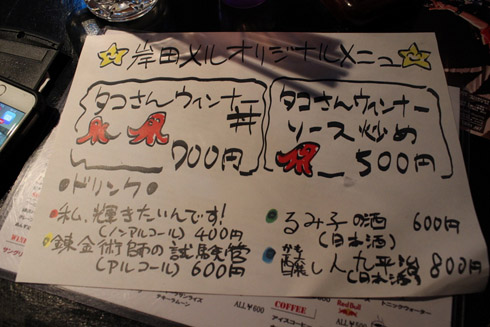 岸田メルオリジナルメニュー
タコさんウィンナー
丼
700円
タコさんウィンナー
ソース炒め
500円
●ドリンク●
●私、輝きたいんです!
(ノンアルコール) 400円
●錬金術師の試験管
(アルコール) 600円
●るみ子の酒 600円
(日本酒)
●醸し人九平次 800円
かも
(日本酒)
ALL¥600
COFFEE
アイスコーヒー
Red Bull
トニックウォーター
ALL¥